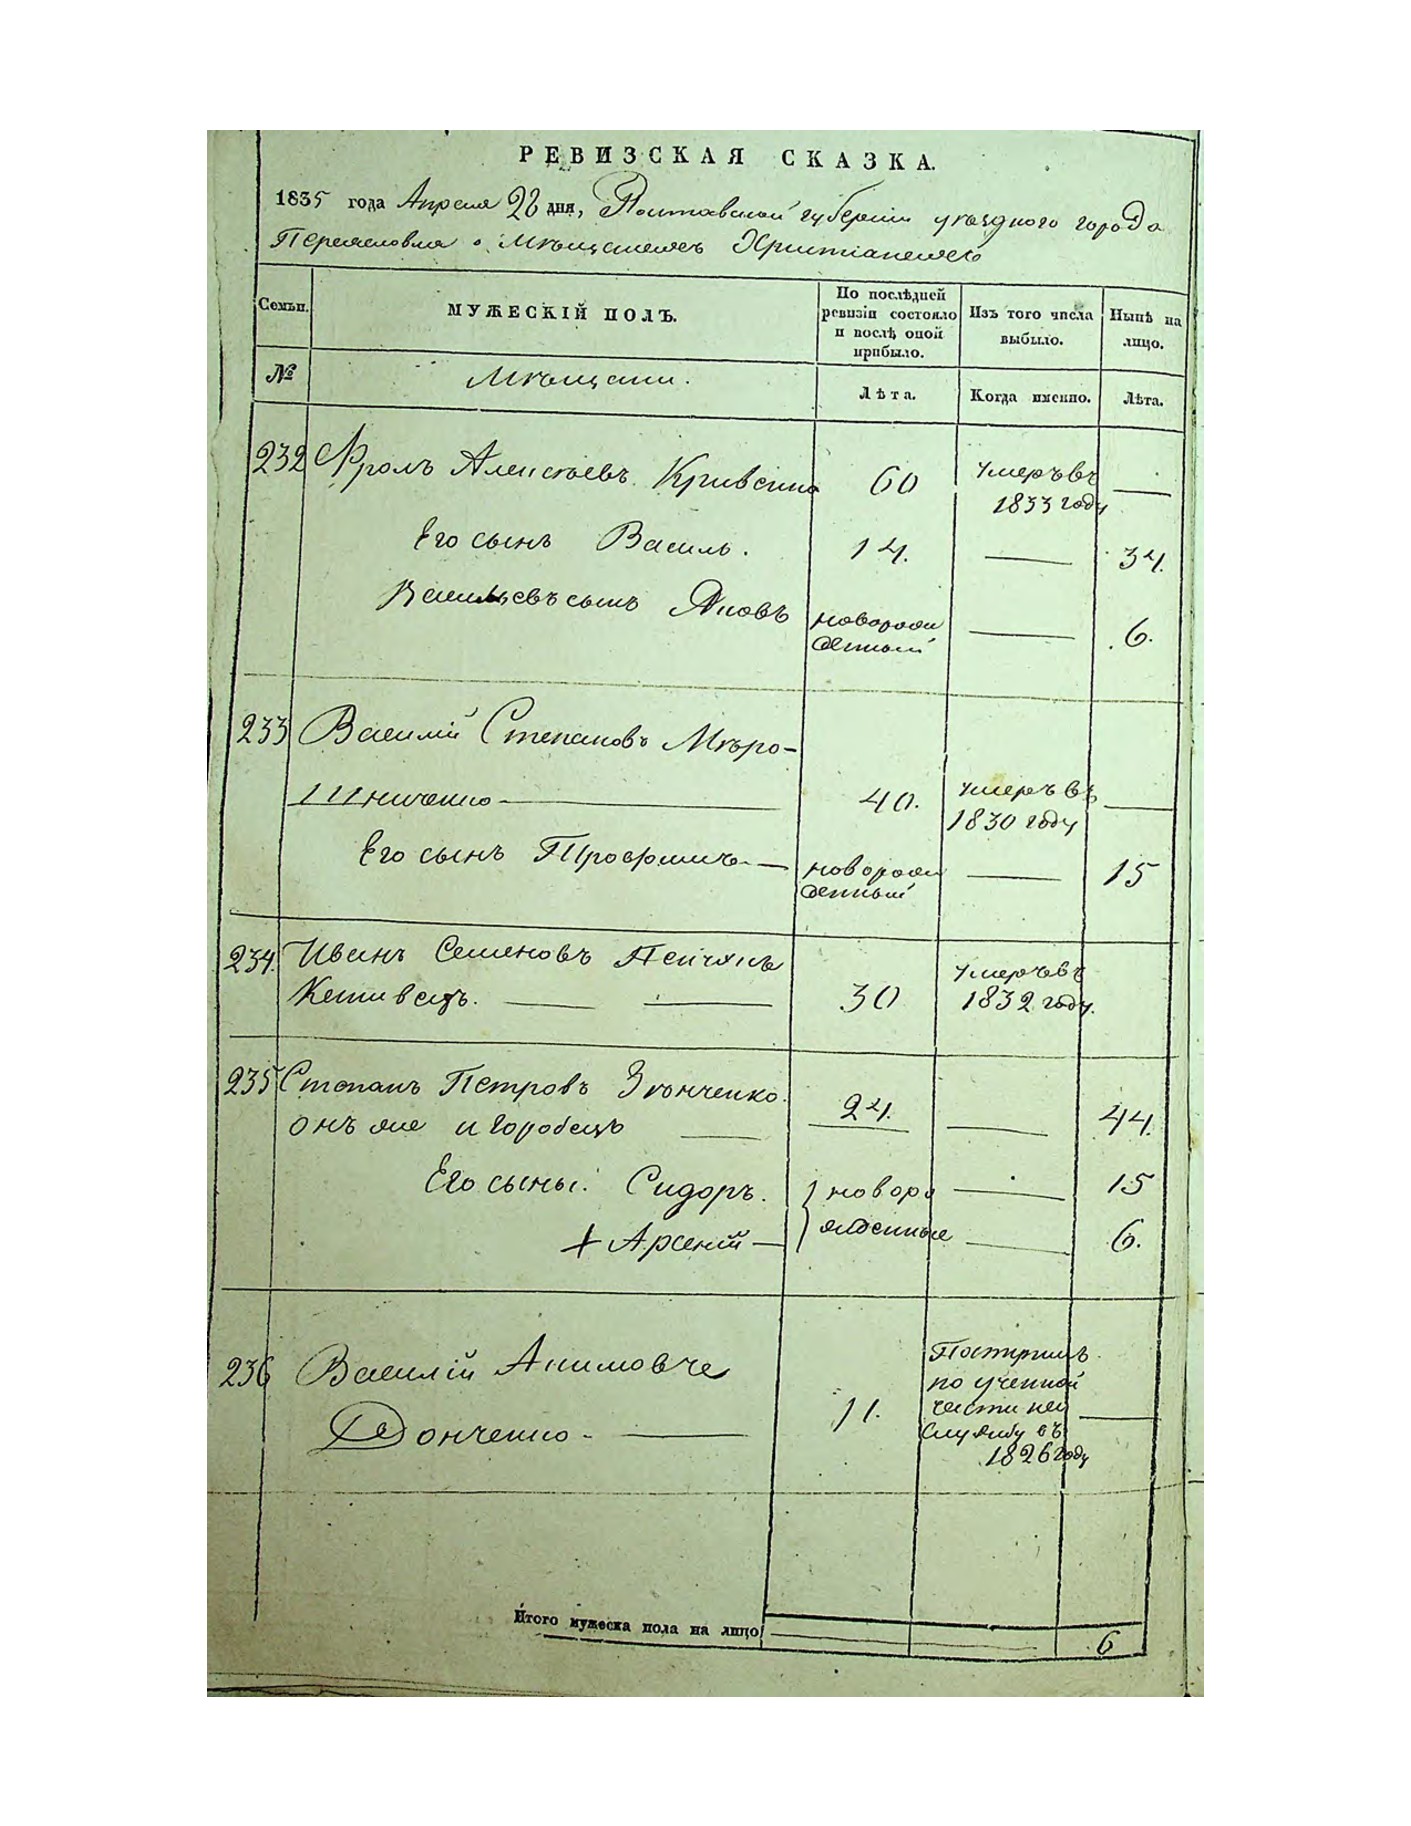 РЕВИЗСКАЯ СКАЗКА.
1835 года Апреля 28 дня, Полтавской губерніи уѣзднаго города
Переяслова о мѣщанехъ Христіанехъ
Семьи.
МУЖЕСКІЙ ПОЛЪ.
По послѣдней ревизіи состояло и послѣ оной прибыло.
Изъ того числа выбыло.
Нынѣ на лицо.
№
Мѣщани.
Лѣта.
Когда именно.
Лѣта.
232 Фролъ Алексѣевъ Кривенко 60 умеръ въ
1833 году
Его сынъ Василь. 14. 34.
Васильевъ сынъ Яковъ новорож
денный 6.
233 Василій Степановъ Мѣро-
шниченко 40. умеръ въ
1830 году
Его сынъ Трофимъ новорож
денный 15
234. Иванъ Семеновъ
30 умеръ въ
1832 году.
235 Степанъ Петровъ Зѣнченко.
онъ же и Горобецъ 24. 44.
Его сыны: Сидоръ. новоро 15
+ Арсеній жденные 6.
236 Василій Акимовъ
Донченко - 11. Поступилъ
по ученной
части на
службу въ
1826 году
Итого мужеска пола на лицо 6